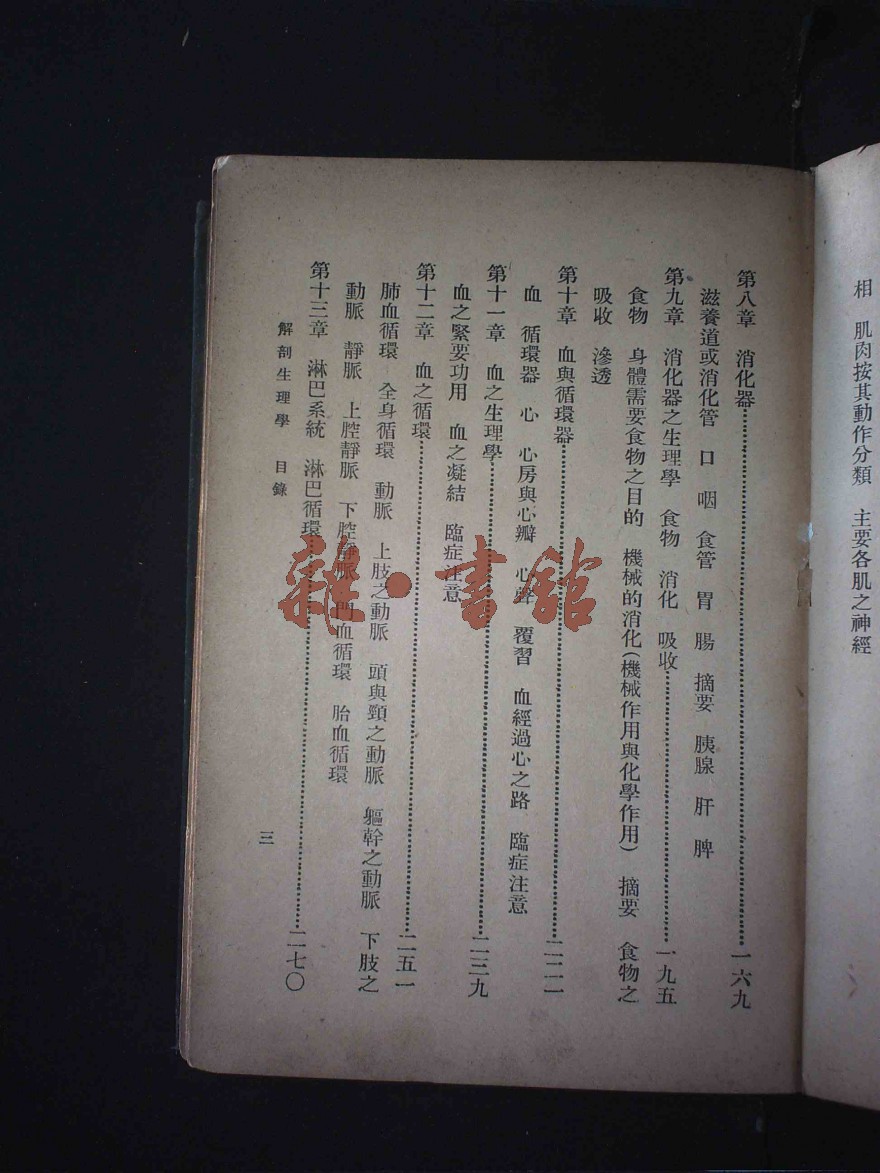 相　肌肉按其動作分類　主要各肌之神經
第八章　消化器……一六九
滋養道或消化管　口　咽　食管　胃　腸　摘要　胰腺　肝　脾
第九章　消化器之生理學　食物　消化　吸收……一九五
食物　身體需要食物之目的　機械的消化(機械作用與化學作用)　摘要　食物之
吸收　滲透
第十章　血與循環器……二二一
血　循環器　心　心房與心瓣　心聲　覆習　血經過心之路　臨症注意
第十一章　血之生理學……二三九
血之緊要功用　血之凝結　臨症注意
第十二章　血之循環……二五一
肺血循環　全身循環　動脈　上肢之動脈　頭與頸之動脈　軀幹之動脈　下肢之
動脈　靜脈　上腔靜脈　下腔靜脈　門血循環　胎血循環
第十三章　淋巴系統　淋巴循環……二七〇
解剖生理學　目錄
三
雜·書館